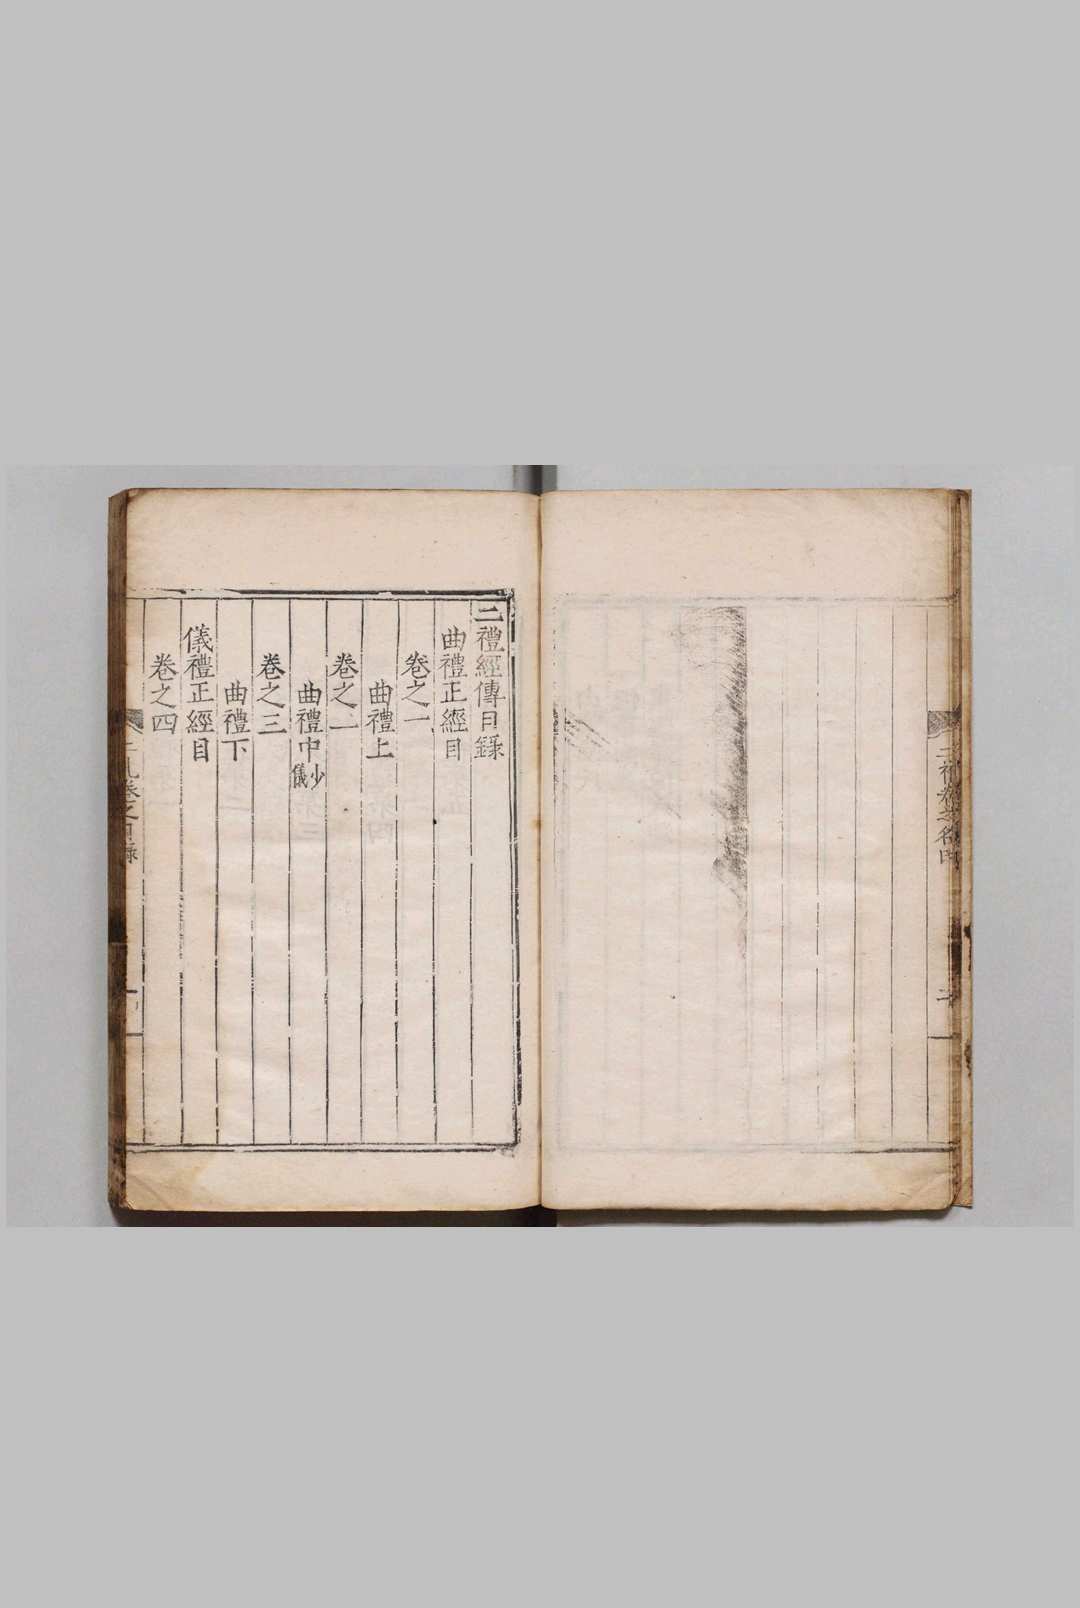 二禮經傳目録
曲禮正經目
卷之一
曲禮上
卷之二
曲禮中少儀
卷之三
曲禮下
儀禮正經目
卷之四